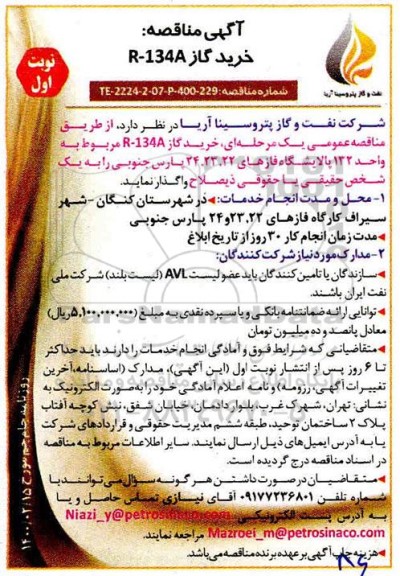 آگهی مناقصه:
خرید گاز R-134A
نوبت اول
نفت و گاز پتروسینا آریا
شماره مناقصه: TE-2224-2-07-P-400-229
شرکت نفت و گاز پتروسینا آریا در نظر دارد، از طریق
مناقصه عمومی یک مرحله‌ای، خرید گاز R-134A مربوط به
واحد ۱۳۲ پالایشگاه فازهای ۲۴،۲۳،۲۲ پارس جنوبی را به یک
شخص حقیقی یا حقوقی ذیصلاح واگذار نماید.
۱- محل و مدت انجام خدمات: در شهرستان کنگان - شهر
سیراف کارگاه فازهای ۲۳،۲۲ و ۲۴ پارس جنوبی
مدت زمان انجام کار ۳۰ روز از تاریخ ابلاغ
۲- مدارک مورد نیاز شرکت کنندگان:
سازندگان یا تامین کنندگان باید عضو لیست AVL (لیست بلند) شرکت ملی
نفت ایران باشند.
توانایی ارائه ضمانتنامه بانکی و یا سپرده نقدی به مبلغ (۵,۱۰۰,۰۰۰,۰۰۰ ریال)
معادل پانصد و ده میلیون تومان
متقاضیانی که شرایط فوق و آمادگی انجام خدمات را دارند باید حداکثر
تا ۶ روز پس از انتشار نوبت اول (این آگهی)، مدارک (اساسنامه، آخرین
تغییرات آگهی، رزومه) و نامه اعلام آمادگی خود را به صورت الکترونیک به
نشانی: تهران، شهرک غرب، بلوار دادمان، خیابان شفق، نبش کوچه آفتاب
پلاک ۲ ساختمان توحید، طبقه ششم مدیریت حقوقی و قراردادهای شرکت
یا به آدرس ایمیل‌های ذیل ارسال نمایند. سایر اطلاعات مربوط به مناقصه
در اسناد مناقصه درج گردیده است.
متقاضیان در صورت داشتن هر گونه سؤال می‌توانند با
شماره تلفن ۰۹۱۷۷۲۳۶۸۰۱ آقای نیازی تماس حاصل و یا
به آدرس پست الکترونیکی Niazi_y@petrosinaco.com
Mazroei_m@petrosinaco.com مراجعه نمایند.
هزینه چاپ آگهی بر عهده برنده مناقصه می‌باشد.
روزنامه جام جم مورخ ۱۴۰۰/۰۲/۱۵